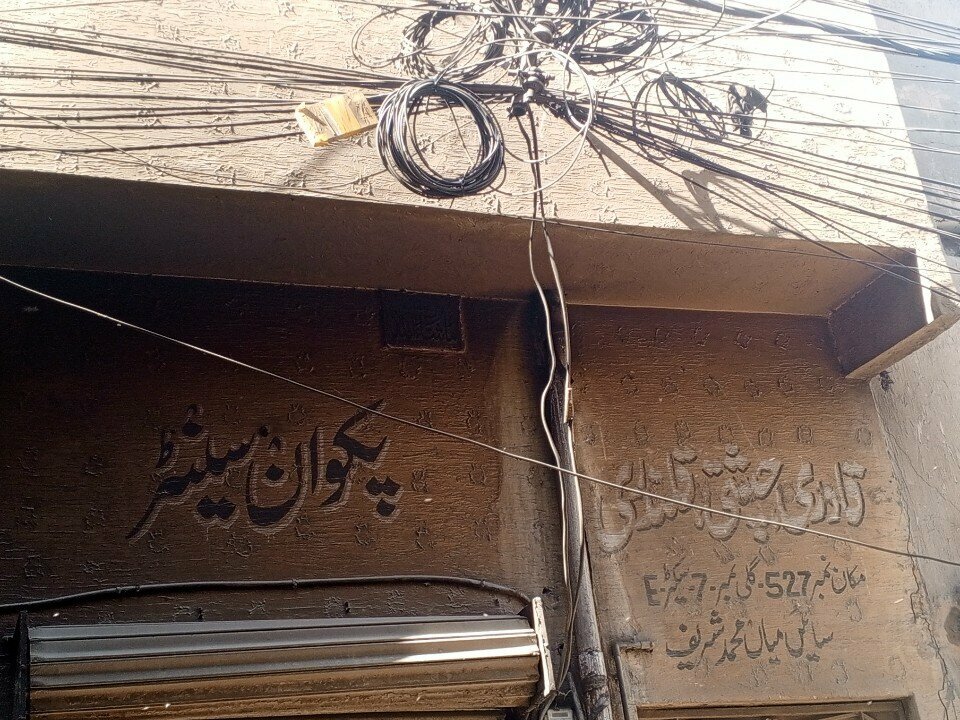 قادری چشتی قلندری
پکوان سینٹر
مکان نمبر 527-گلی نمبر-7-سیکٹر-E
سائیں میاں محمد شریف